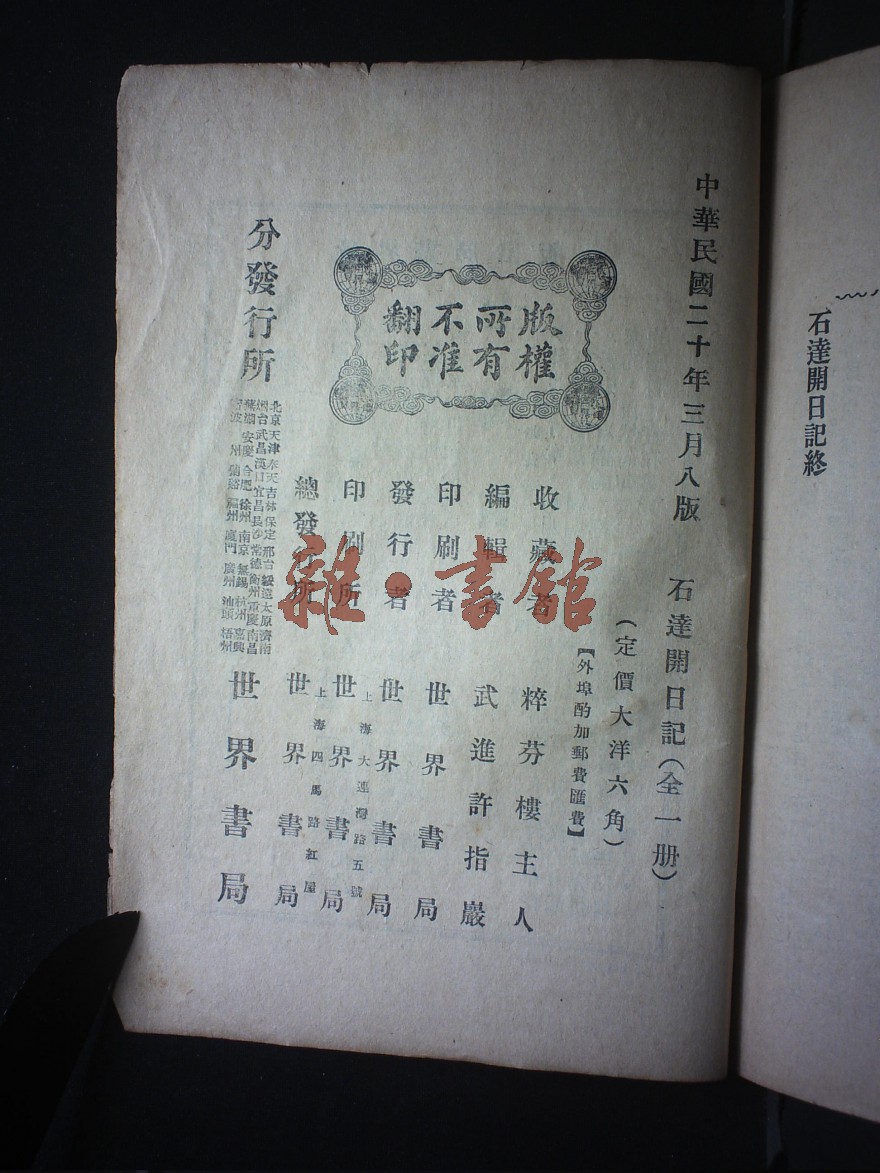 石達開日記終
中華民國二十年三月八版
石達開日記(全一册)
(定價大洋六角)
【外埠酌加郵費匯費】
版權所有不准翻印
收藏者 粹芬樓主人
編輯者 武進許指嚴
印刷者 世界書局
發行者 世界書局
上海大連灣路五號
印刷所 世界書局
上海四馬路紅屋
總發行所 世界書局
分發行所
北京天津奉天吉林保定邢台綏遠太原濟南
烟台武昌漢口宜昌長沙常德衡州重慶南昌
蕪湖安慶合肥徐州南京無錫杭州嘉興
福州廈門廣州汕頭梧州
世界書局
雜·書館